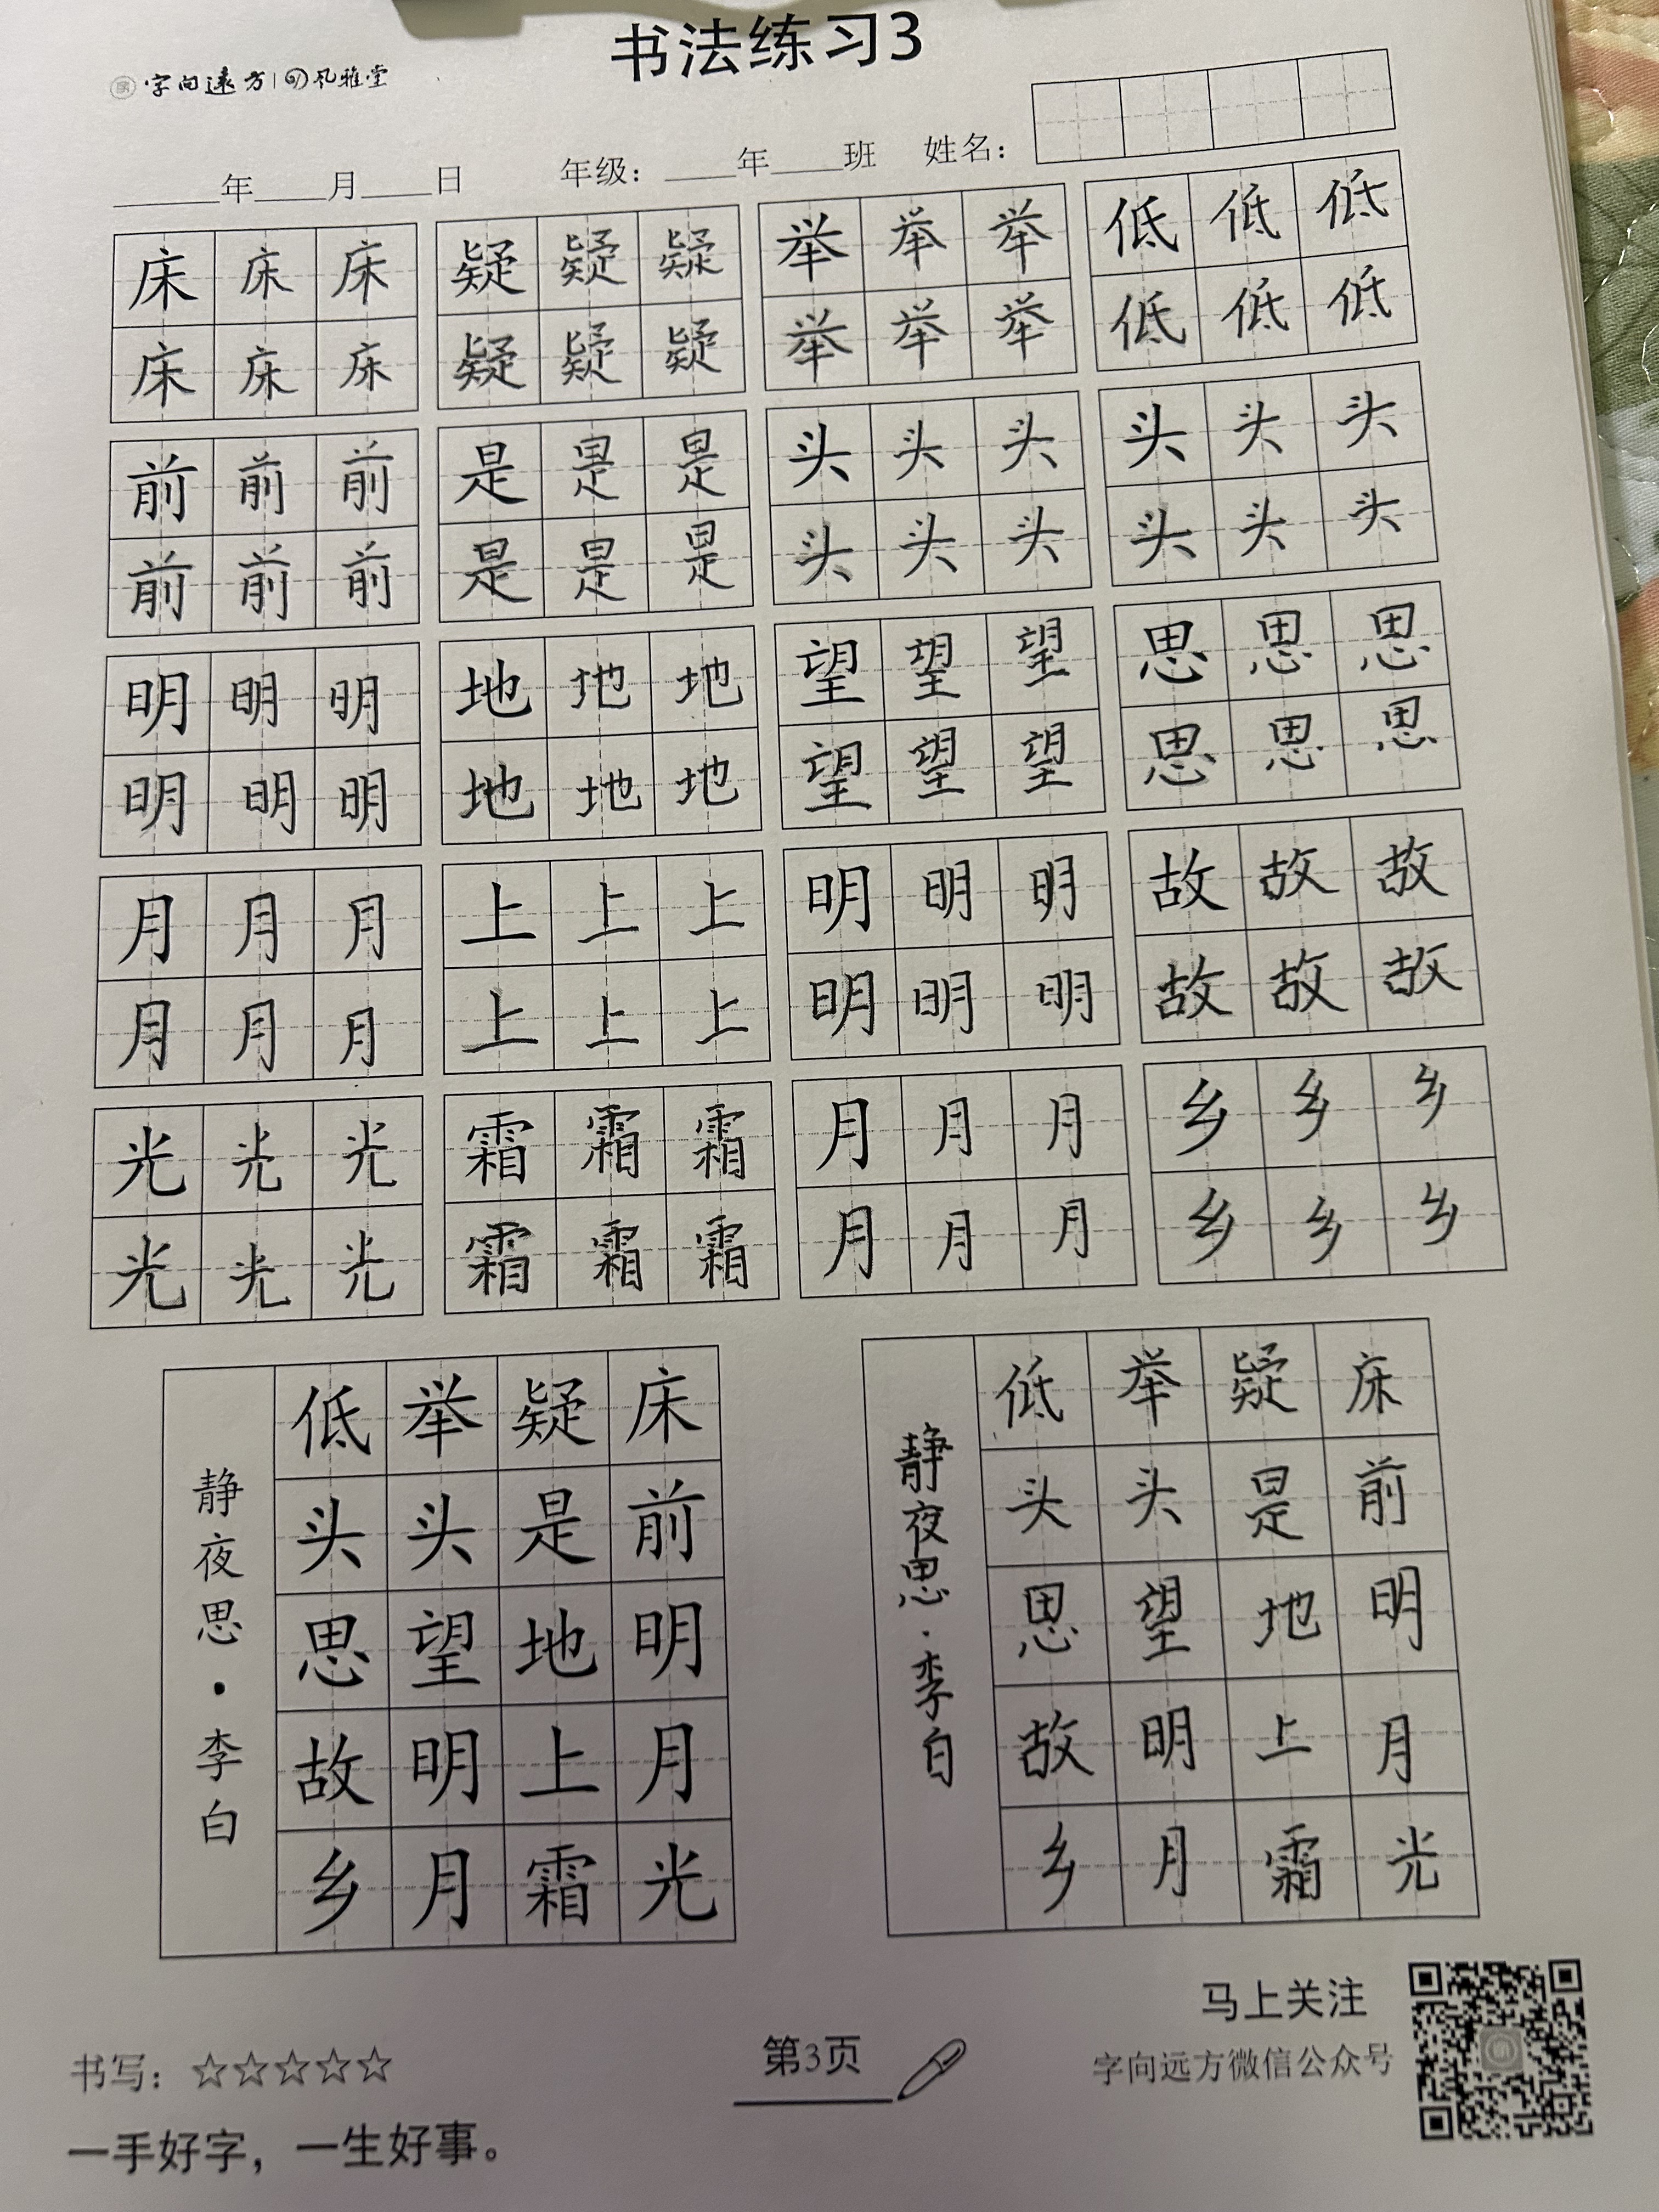 书法练习3
字向远方 | 风雅堂
____年____月____日 年级：____年____班 姓名：
床床床 疑疑疑 举举举 低低低
床床床 疑疑疑 举举举 低低低
前前前 是是是 头头头 头头头
前前前 是是是 头头头 头头头
明明明 地地地 望望望 思思思
明明明 地地地 望望望 思思思
月月月 上上上 明明明 故故故
月月月 上上上 明明明 故故故
光光光 霜霜霜 月月月 乡乡乡
光光光 霜霜霜 月月月 乡乡乡
床前明月光
疑是地上霜
举头望明月
低头思故乡
静夜思·李白
床前明月光
疑是地上霜
举头望明月
低头思故乡
静夜思·李白
马上关注
字向远方微信公众号
书写：☆☆☆☆☆
第3页
一手好字，一生好事。